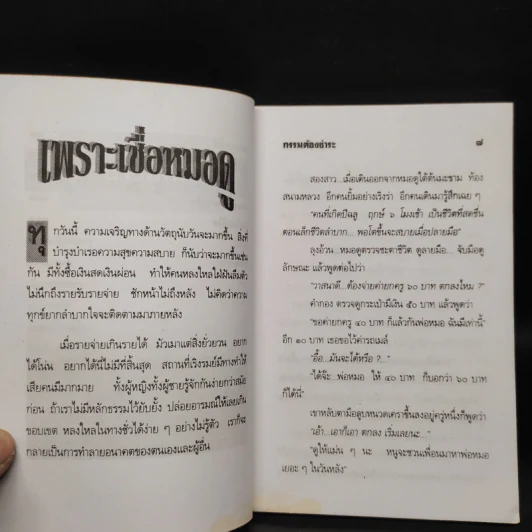 เพราะเชื่อหมอดู
ทุกวันนี้ ความเจริญทางด้านวัตถุนับวันจะมากขึ้น สิ่งที่
บำรุงบำเรอความสุขความสบาย ก็นับว่าจะมากขึ้นเช่น
กัน มีทั้งซื้อเงินสดเงินผ่อน ทำให้คนหลงใหลใฝ่ฝันลืมตัว
ไม่นึกถึงรายรับรายจ่าย ชักหน้าไม่ถึงหลัง ไม่คิดว่าความ
ทุกข์ยากลำบากใจจะติดตามมาภายหลัง
เมื่อรายจ่ายเกินรายได้ มัวเมาแต่สิ่งยั่วยวน อยาก
ได้โน่น อยากได้นี่ไม่มีที่สิ้นสุด สถานที่เริงรมย์มีทางทำให้
เสียคนมีมากมาย ทั้งผู้หญิงทั้งผู้ชายรู้จักกันง่ายกว่าสมัย
ก่อน ถ้าเราไม่มีหลักธรรมไว้ยับยั้ง ปล่อยอารมณ์ให้เลยเกิน
ขอบเขต หลงใหลในทางชั่วได้ง่าย ๆ อย่างไม่รู้ตัว เราก็จะ
กลายเป็นการทำลายอนาคตของตนเองและผู้อื่น
กรรมต้องชำระ ๗
สองสาว...เมื่อเดินออกจากหมอดูใต้ต้นมะขาม ท้อง
สนามหลวง อีกคนยิ้มอย่างเริงร่า อีกคนเดินมารู้สึกเฉย ๆ
"คนที่เกิดปีฉลู ฤกษ์ ๖ โมงเช้า เป็นชีวิตที่สดชื่น
ตอนเล็กชีวิตลำบาก... พอโตขึ้นจะสบายเมื่อปลายมือ"
ลุงอ้วน...หมอดูตรวจชะตาชีวิต ดูลายมือ... จับมือดู
ลักษณะ แล้วพูดต่อไปว่า
"วาสนาดี...ต้องจ่ายค่ายกครู ๖๐ บาท ตกลงไหม ?"
คำกอง ตรวจดูกระเป๋ามีเงิน ๕๐ บาท แล้วพูดว่า
"ขอค่ายกครู ๔๐ บาท ก็แล้วกันพ่อหมอ ฉันมีเท่านี้"
อีก ๑๐ บาท เธอขอไว้ค่ารถเมล์
"อื้อ...มันจะได้หรือ ?..."
"ได้จ้ะ...พ่อหมอ ให้ ๔๐ บาท ก็บอกว่า ๖๐ บาท
ก็ได้นี่"
เขาหลับตามือลูบหนวดเคราขึ้นลงอยู่ครู่หนึ่งก็พูดว่า
"เอ้า...เอาก็เอา ตกลง เริ่มเลยนะ..."
"ดูให้แม่น ๆ นะ หนูจะชวนเพื่อนมาหาพ่อหมอ
เยอะ ๆ ในวันหลัง"